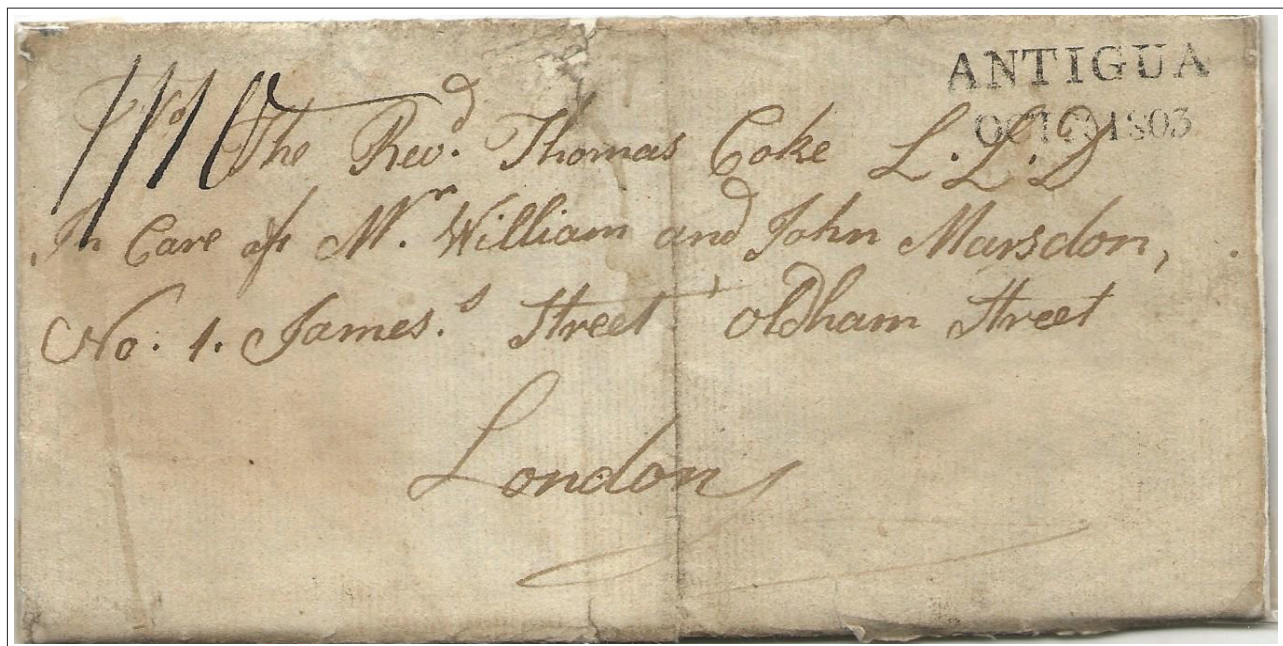 ANTIGUA
1803
The Revd. Thomas Coke L.L.D
In Care of Mr. William and John Marsdon,
No. 1. James.s Street oldham Street
London